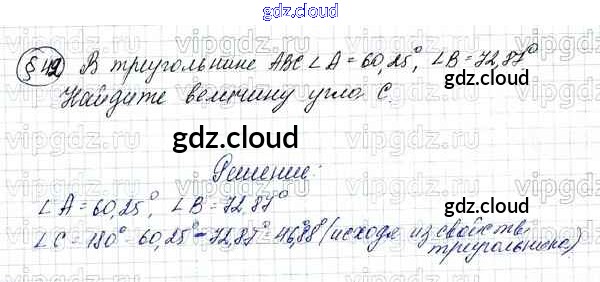 gdz.cloud
§42 В треугольнике ABC ∠A = 60,25°, ∠B = 72,87°
Найдите величину угла C.
gdz.cloud
gdz.cloud
Решение:
∠A = 60,25°, ∠B = 72,87°
∠C = 180° - 60,25° - 72,87° = 46,88° (исходя из свойств
треугольника)
gdz.cloud